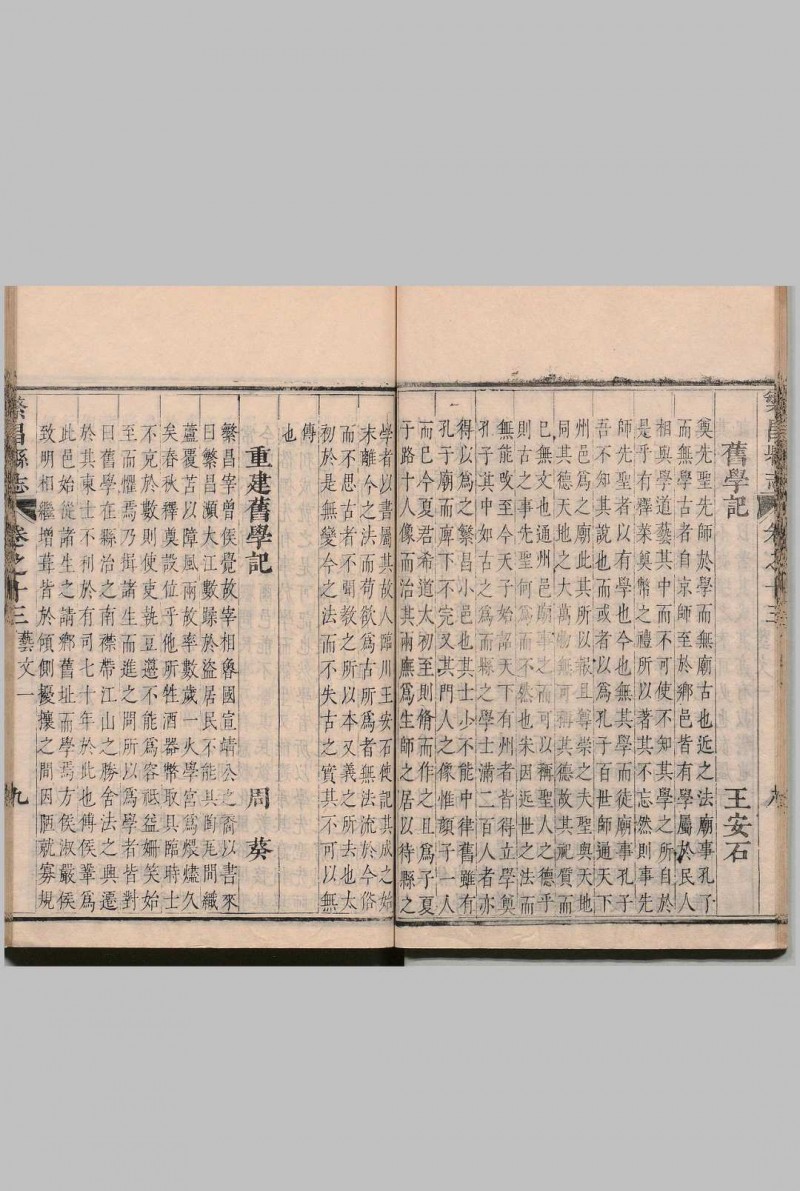 舊學記 王安石
奠先聖先師於學而無廟古也近之法廟事孔子
而無學古者自京師至於鄉邑皆有學屬於民人
相與學道藝其中而不可使不知其學之所自於
是乎有釋菜奠幣之禮所以著其不忘然則事先
師先聖者以有學也今也無其學而徒廟事孔子
吾不知其說也而或者以為孔子百世師通天下
州邑為之廟此其所以報且尊崇之夫聖與天地
同其德天地之大萬物無可稱其德故其祀質而
已無文也通州邑廟事之而可以稱聖人之德乎
則古之事先聖何為而不然也宋因近世之法而
無能改至今天子始詔天下有州者皆得立學奠
孔子其中如古之為而縣之學士滿二百人者亦
得以為之繁昌小邑也其士少不能中律舊雖有
孔子廟而庳下不完又其門人之像惟顏子一人
而已今夏君希道太初至則脩而作之且為子夏
子路十人像而治其兩廡為生師之居以待縣之
學者以書屬其故人臨川王安石使記其成之始
末離今之法而苟欲為古之為者無法流於今俗
而不思古者不聞教之所以本又義之所去也太
初於是無變今之法而不失古之實其不可以無
傳也
重建舊學記 周葵
繁昌宰曾侯覺故宰相魯國宣靖公之裔以書來
曰繁昌瀕大江數躁於盜居民不能具陶瓦間織
蘆覆苫以障風雨故率數歲一火學宮為煨燼久
矣春秋釋奠設位乎他所牲酒器幣取具臨時士
不克於數則使吏執豆籩不能為容祗益姍笑始
至而懼焉乃揖諸生而進之問所以為學者皆對
曰舊學在縣治之南襟帶江山之勝舍法之興遷
於其東士不利於有司七十年於此也傅侯鞏為
此邑始從諸生之請鄉舊址而學焉方侯淑嚴侯
致明相繼增葺皆於傾側擾攘之間因陋就寡規
繁昌縣志 卷之十三 藝文一 九